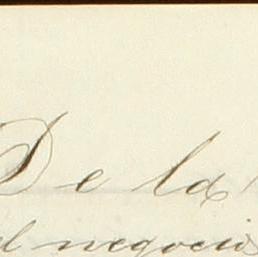 De la
el negocio